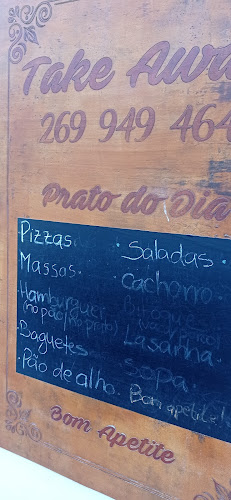 Take Away
269 949 464
Prato do Dia
Pizzas
Massas
Hamburguer
(no pão/no prato)
Baguetes
Pão de alho
Saladas
Cachorro
Lasanha
Sopa
Bom apetite
Bom Apetite